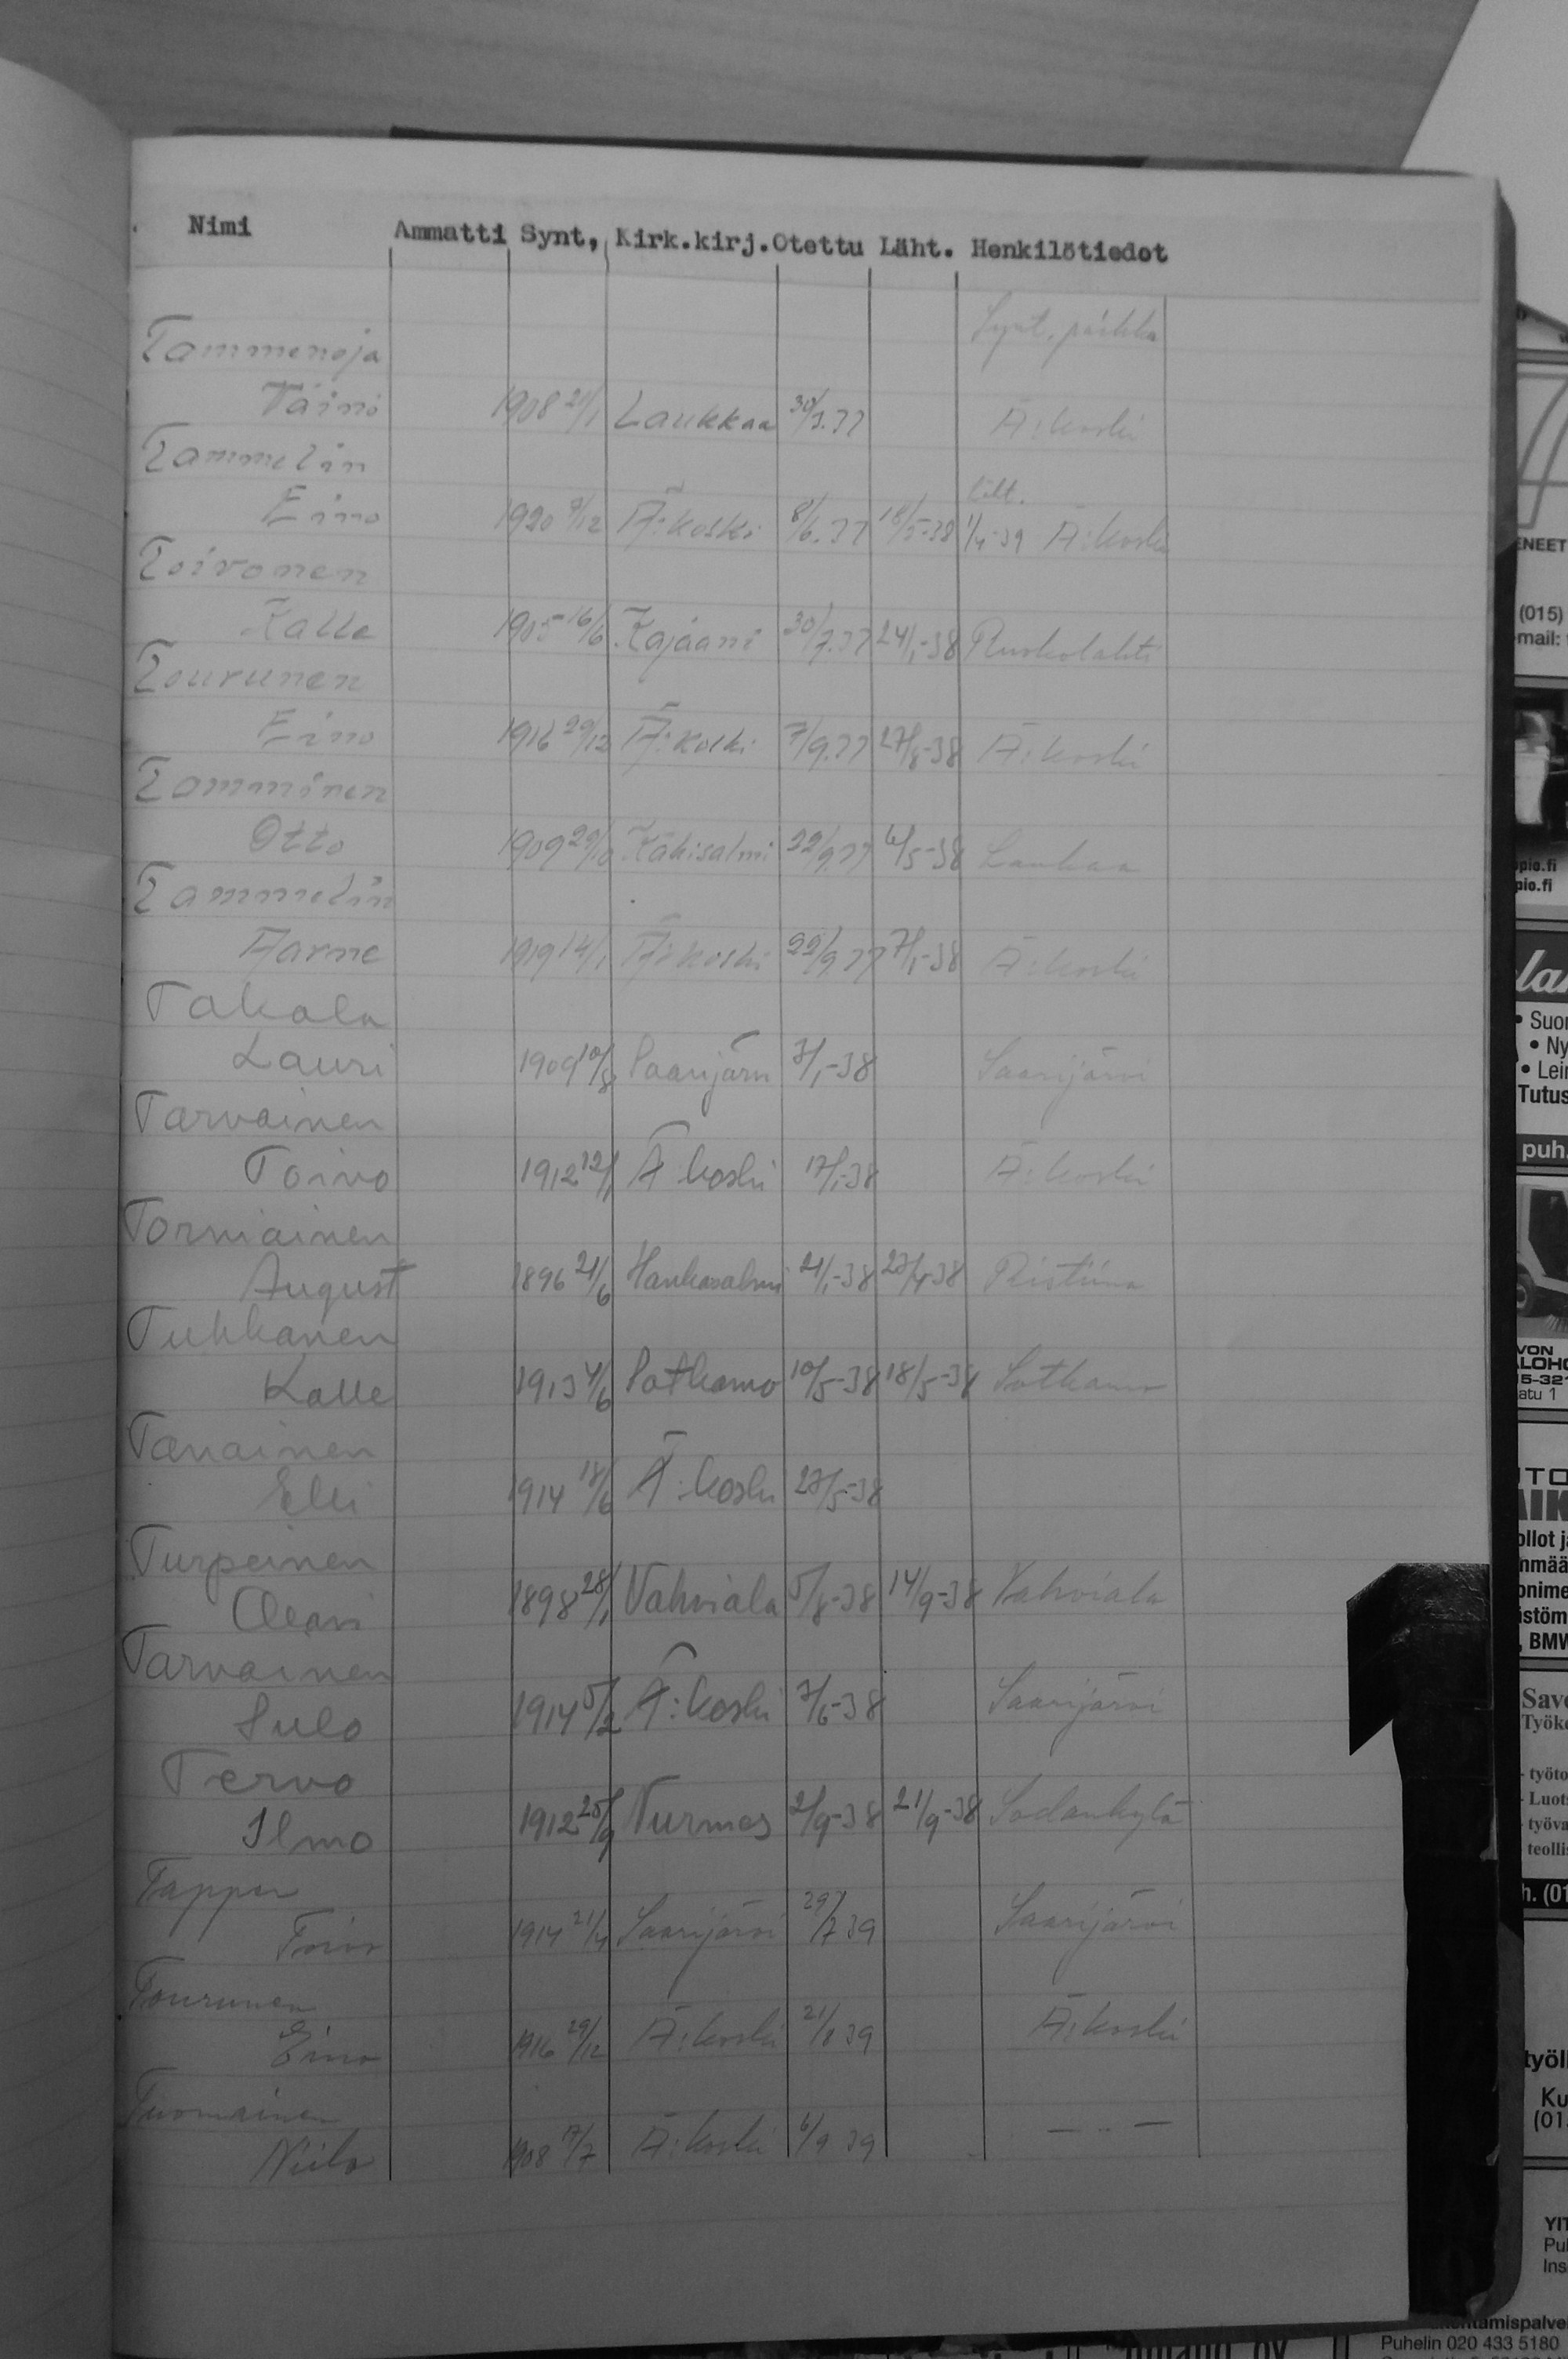 Nimi Ammatti Synt, Kirk.kirj. Otettu Läht. Henkilötiedot
Synt. paikka
Tammenoja
Väinö 1908 21/1 Laukkaa 30/3.37 Ä:koski
Tammelin
Eino 1920 Ä:koski 8/6.37 18/5-38 1/4-39 Ä:koski
Toivonen
Kalle 1905 16/6 Kajaani 30/7.37 24/1-38 Ruokolahti
Tourunen
Eino 1916 29/12 Ä:koski 7/9.37 27/8-38 Ä:koski
Tamminen
Otto 1909 Käkisalmi 22/9.37 6/5-38 Laukaa
Tammelin
Aarne 1919 14/1 Ä:koski 22/9.37 7/1-38 Ä:koski
Takala
Lauri 1909 10/8 Saarijärvi 7/1-38 Saarijärvi
Tarvainen
Toivo 1912 12/1 Ä:koski 17/1-38 Ä:koski
Torniainen
August 1896 21/6 Hankasalmi 21/1-38 23/4-38 Ristiina
Tuhkanen
Kalle 1913 4/6 Sotkamo 10/5-38 18/5-38 Sotkamo
Elli 1914 18/6 Ä:koski 27/5-38
Turpeinen
1898 28/1 Vahviala 5/8-38 14/9-38 Vahviala
Tarvainen
Sulo 1914 5/2 Ä:koski 7/6-38 Saarijärvi
Tervo
Ilmo 1912 25/9 Nurmes 2/9-38 21/9-38 Sodankylä
Tappu
Toivo 1914 21/4 Saarijärvi 29/7 39 Saarijärvi
Tourunen
Eino 1916 29/12 Ä:koski 21/8 39 Ä:koski
Tuomainen
Niilo 1908 17/7 Ä:koski 6/9 39 — " —
ENEET
(015)
pio.fi
pio.fi
puh.
Tutus
BMW
Puhelin 020 433 5180